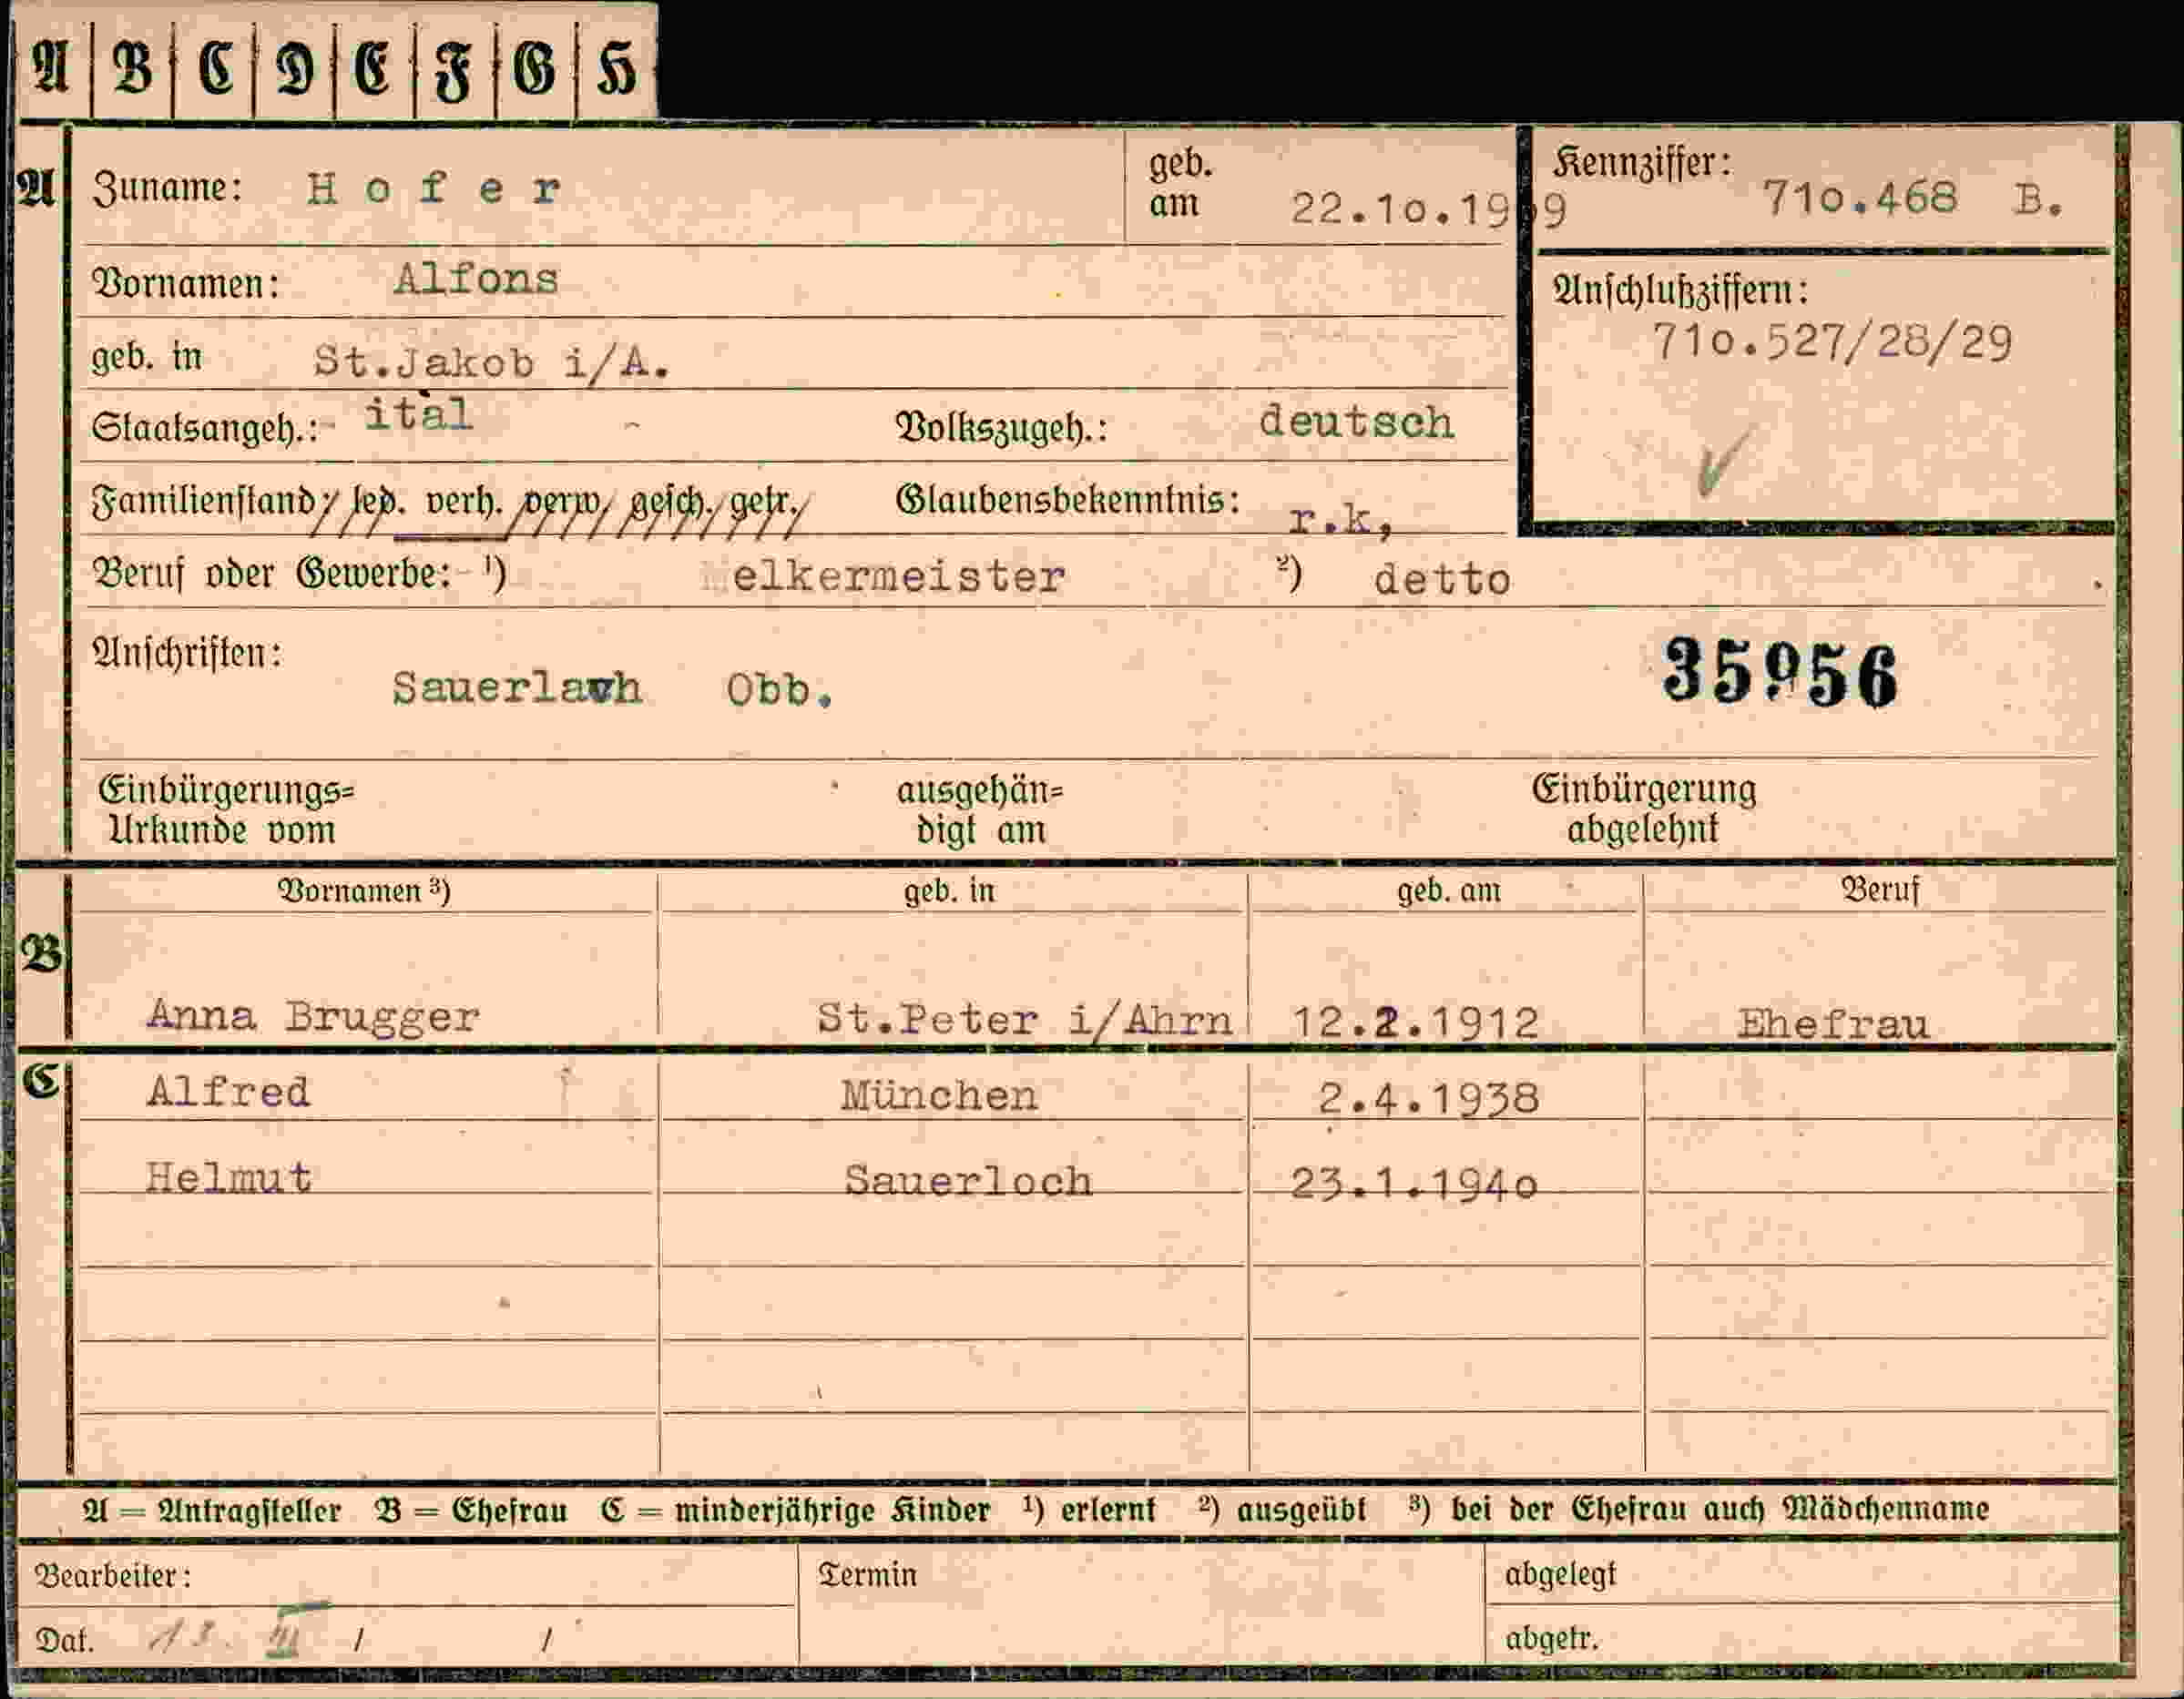 A B C D E F G H
A Zuname: Hofer geb. am 22.10.1909 Kennziffer: 710.468 B.
Vornamen: Alfons Anschlußziffern:
710.527/28/29
geb. in St.Jakob i/A.
Staatsangeh.: ital Volkszugeh.: deutsch
Familienstand: led. verh. verw. gesch. getr. Glaubensbekenntnis: r.k,
Beruf oder Gewerbe: ¹) elkermeister ²) detto
Anschriften: 35956
Sauerlach Obb.
Einbürgerungs= ausgehän= Einbürgerung
Urkunde vom digt am abgelehnt
Vornamen ³) geb. in geb. am Beruf
B
Anna Brugger St.Peter i/Ahrn 12.2.1912 Ehefrau
C Alfred München 2.4.1938
Helmut Sauerloch 23.1.1940
A = Antragsteller B = Ehefrau C = minderjährige Kinder ¹) erlernt ²) ausgeübt ³) bei der Ehefrau auch Mädchenname
Bearbeiter: Termin abgelegt
Dat. III / / abgetr.